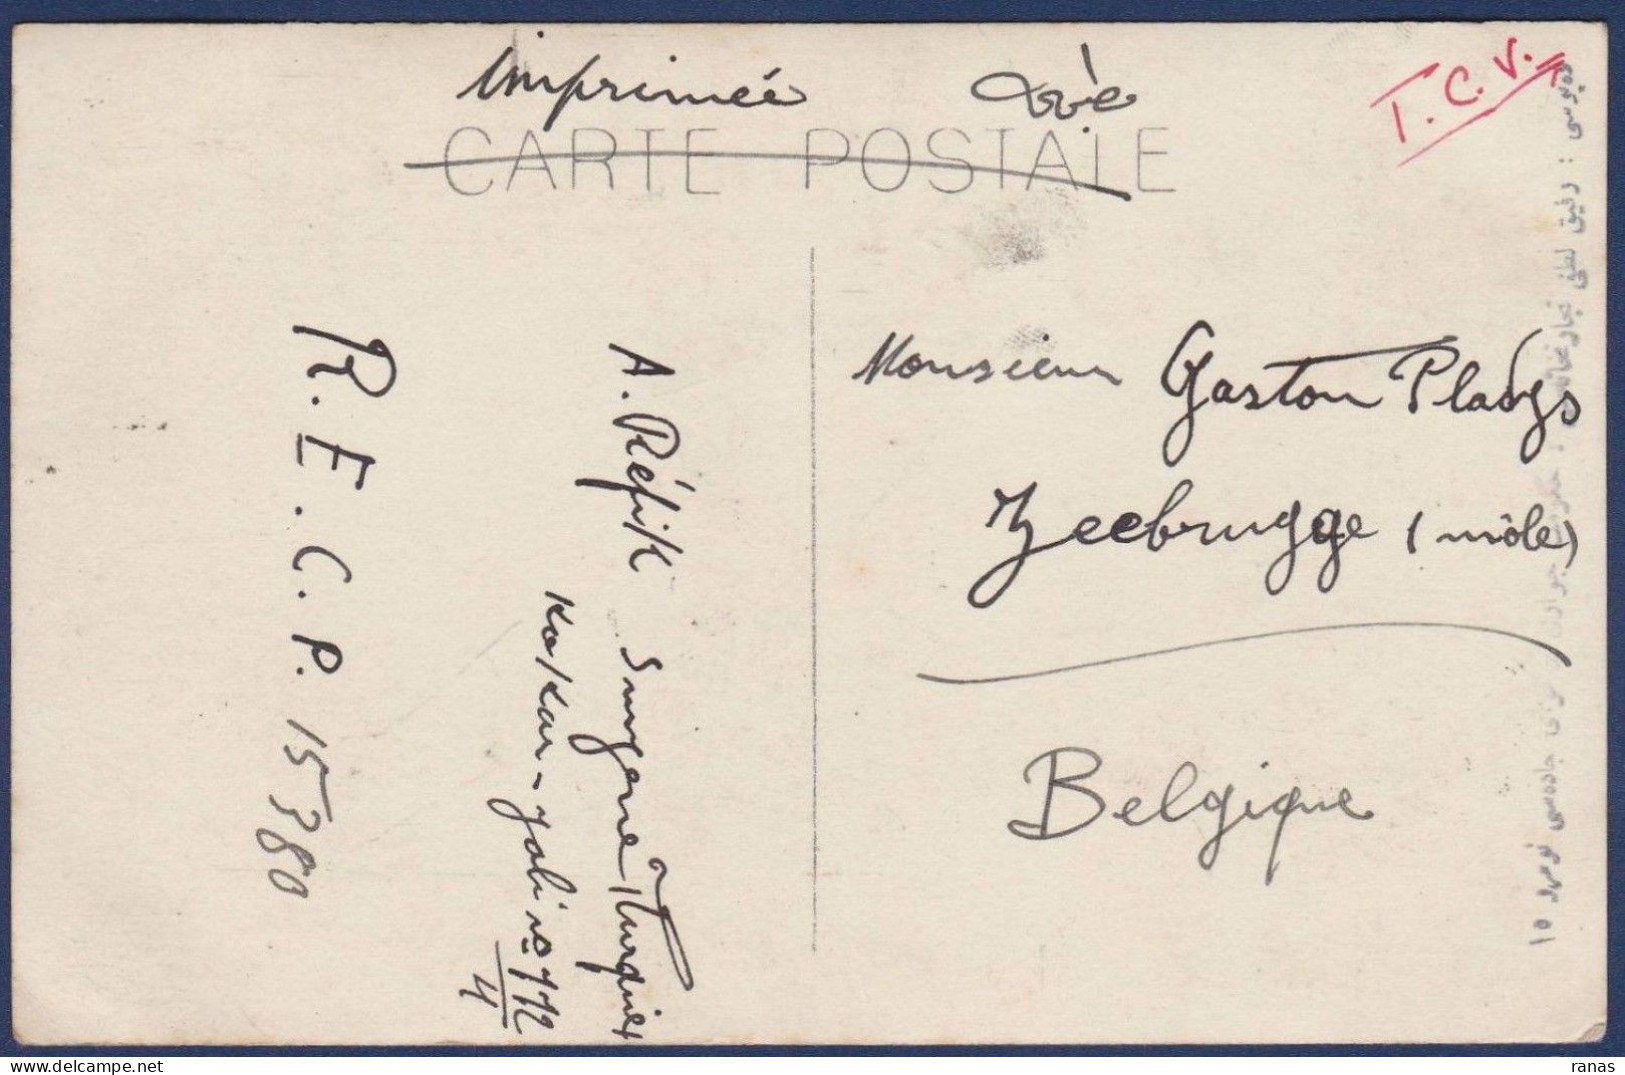 Imprimée
T.C.V.
CARTE POSTALE
Monsieur Gaston Pladys
Zeebrugge (môle)
Belgique
A. Réfik Smyrne (Turquie)
Kokar-yali no 112/4
R.E.C.P. 15380
ranas